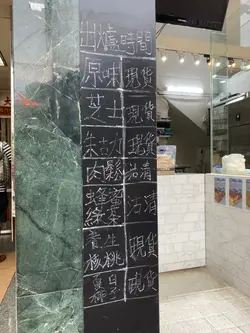 出爐時間
原味 現貨
芝士 現貨
朱古力 現貨
肉鬆 沽清
蜂蜜
綠茶 沽清
養生
核桃 現貨
椰 現貨